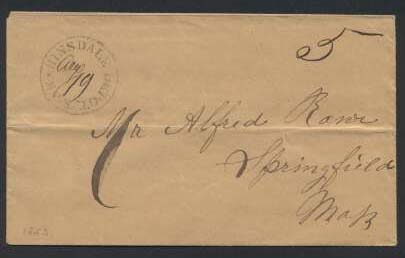 5
HINSDALE DEPOT. MAS.
Aug
19
Mr Alfred Rowe
Springfield
Mass
1853